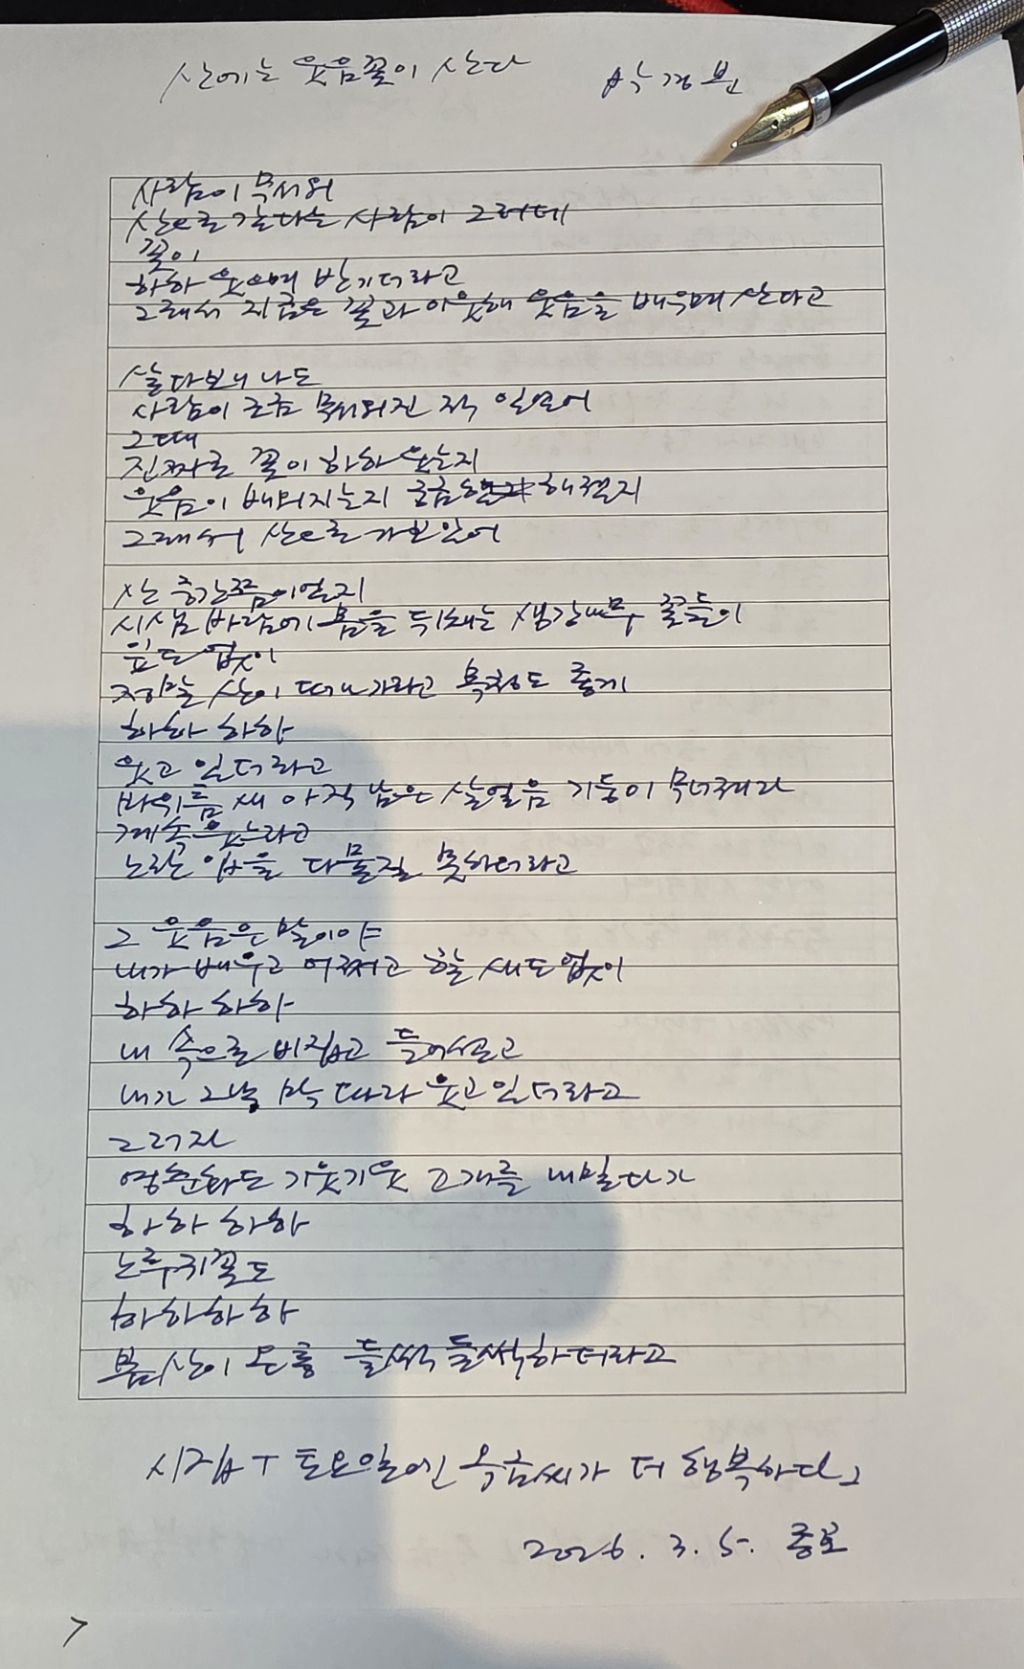 산에는 웃음꽃이 산다 박경분
사람이 무서워
산으로 갔다는 사람이 그러데
꽃이
하하 웃으며 반기더라고
그래서 지금은 꽃과 이웃해 웃음을 배우며 산다고
살다보니 나도
사람이 조금 무서워진 적 있었어
그때
진짜로 꽃이 하하 웃는지
웃음이 배워지는지 궁금해졌지
그래서 산으로 가보았어
산 중간쯤이었지
시샘바람에 몸을 뒤채는 생강나무 꽃들이
잎도 없이
저만 산이 떠나가라고 목청도 좋게
하하 하하
웃고 있더라고
바위틈새 아직 남은 살얼음 기둥이 무너져라
계속 웃느라고
노란 입을 다물질 못하더라고
그 웃음은 말이야
내가 배우고 어쩌고 할 새도 없이
하하 하하
내 속으로 비집고 들어서고
내가 그냥 막 따라 웃고 있더라고
그러자
영춘화도 기웃기웃 고개를 내밀다가
하하 하하
노루귀꽃도
하하하하
봄산이 온통 들썩들썩하더라고
시집「토요일엔 옥금씨가 더 행복하다」
2026. 3. 5. 종로
7